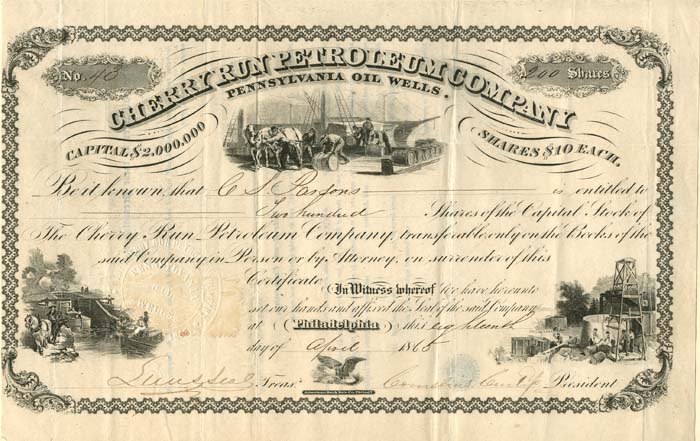 No. 43
200 Shares
CHERRY RUN PETROLEUM COMPANY
PENNSYLVANIA OIL WELLS.
CAPITAL $2,000,000
SHARES $10 EACH.
Be it known, that C S Parsons is entitled to
Two hundred Shares of the Capital Stock of
The Cherry Run Petroleum Company, transferable only on the Books of the
said Company in Person or by Attorney, on surrender of this
Certificate
In Witness whereof we have hereunto
set our hands and affixed the Seal of the said Company
at Philadelphia this eighteenth
day of April 1865
Treas.
President